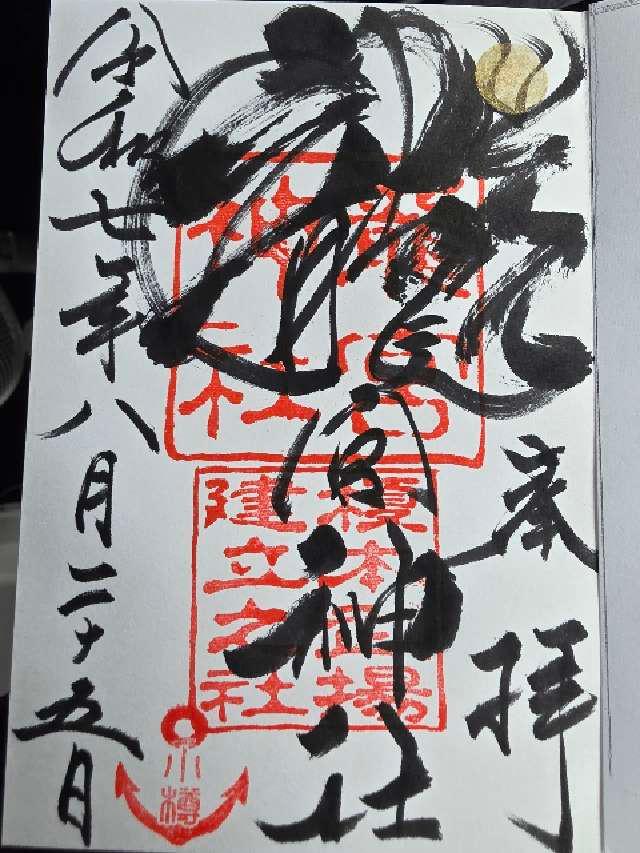 奉拝
龍宮神社
令和七年八月二十五日
龍宮
神社
榎本武揚
建立之社
小樽